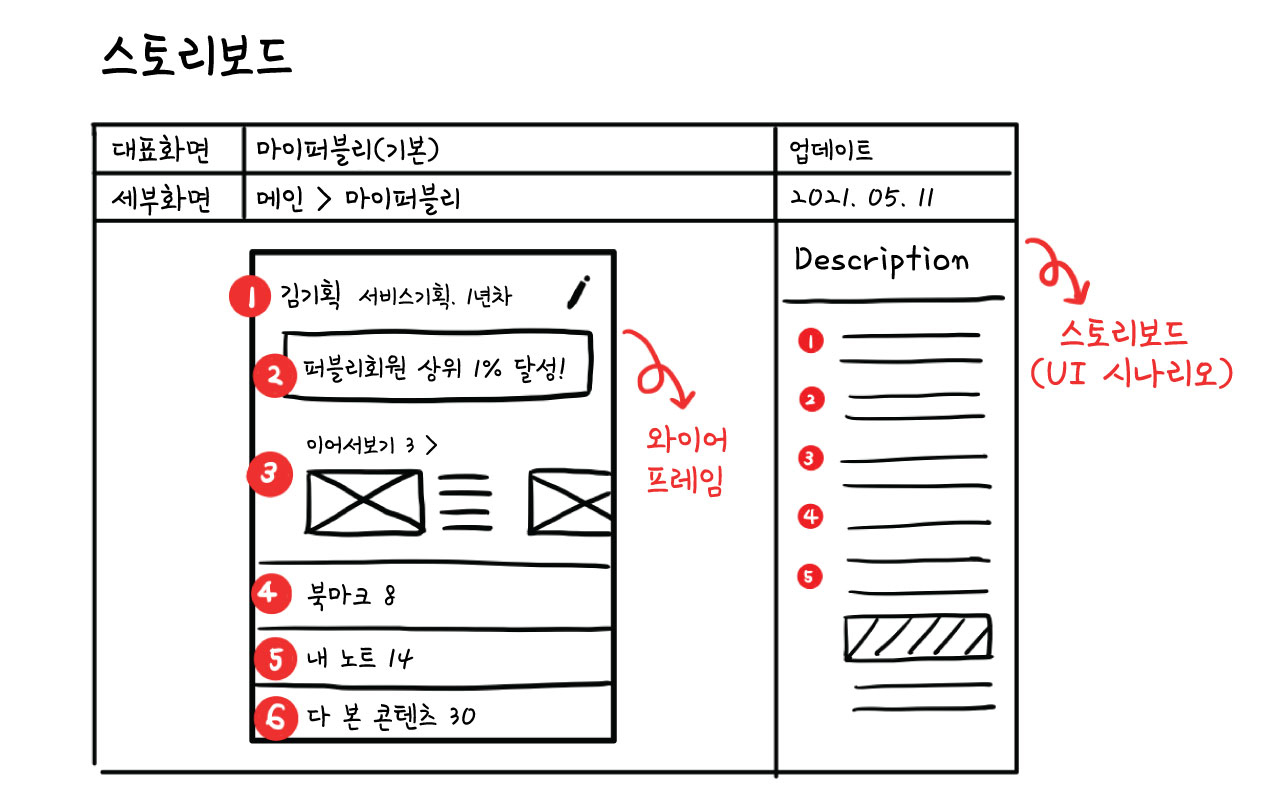 스토리보드
대표화면 마이퍼블리(기본) 업데이트
세부화면 메인 > 마이퍼블리 2021. 05. 11
1 김기획 서비스기획. 1년차
2 퍼블리회원 상위 1% 달성!
이어서보기 3 >
3
4 북마크 8
5 내 노트 14
6 다 본 콘텐츠 30
와이어
프레임
Description
1
2
3
4
5
스토리보드
(UI 시나리오)